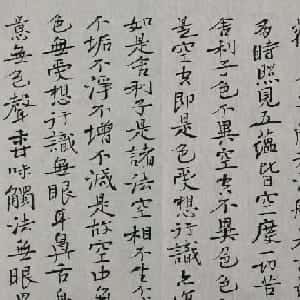 多時照見五蘊皆空度一切苦
舍利子色不異空空不異色色
是空空即是色受想行識亦
如是舍利子是諸法空相不生不
不垢不淨不增不減是故空中
色無受想行識無眼耳鼻舌
意無色聲香味觸法無眼界